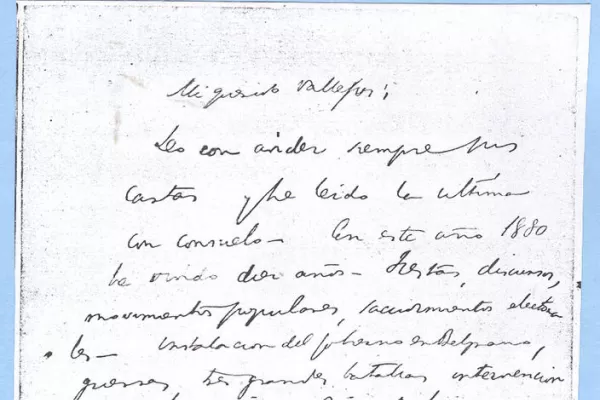 Mi querido Vallejos;
Leo con avidez siempre sus
cartas y he leido la ultima
con consuelo - En este año 1880
he vivido diez años - Fiestas, discursos,
movimientos populares, sacudimientos electora
les - instalacion del gobierno en Belgrano,
guerras, tres grandes batallas intervencion